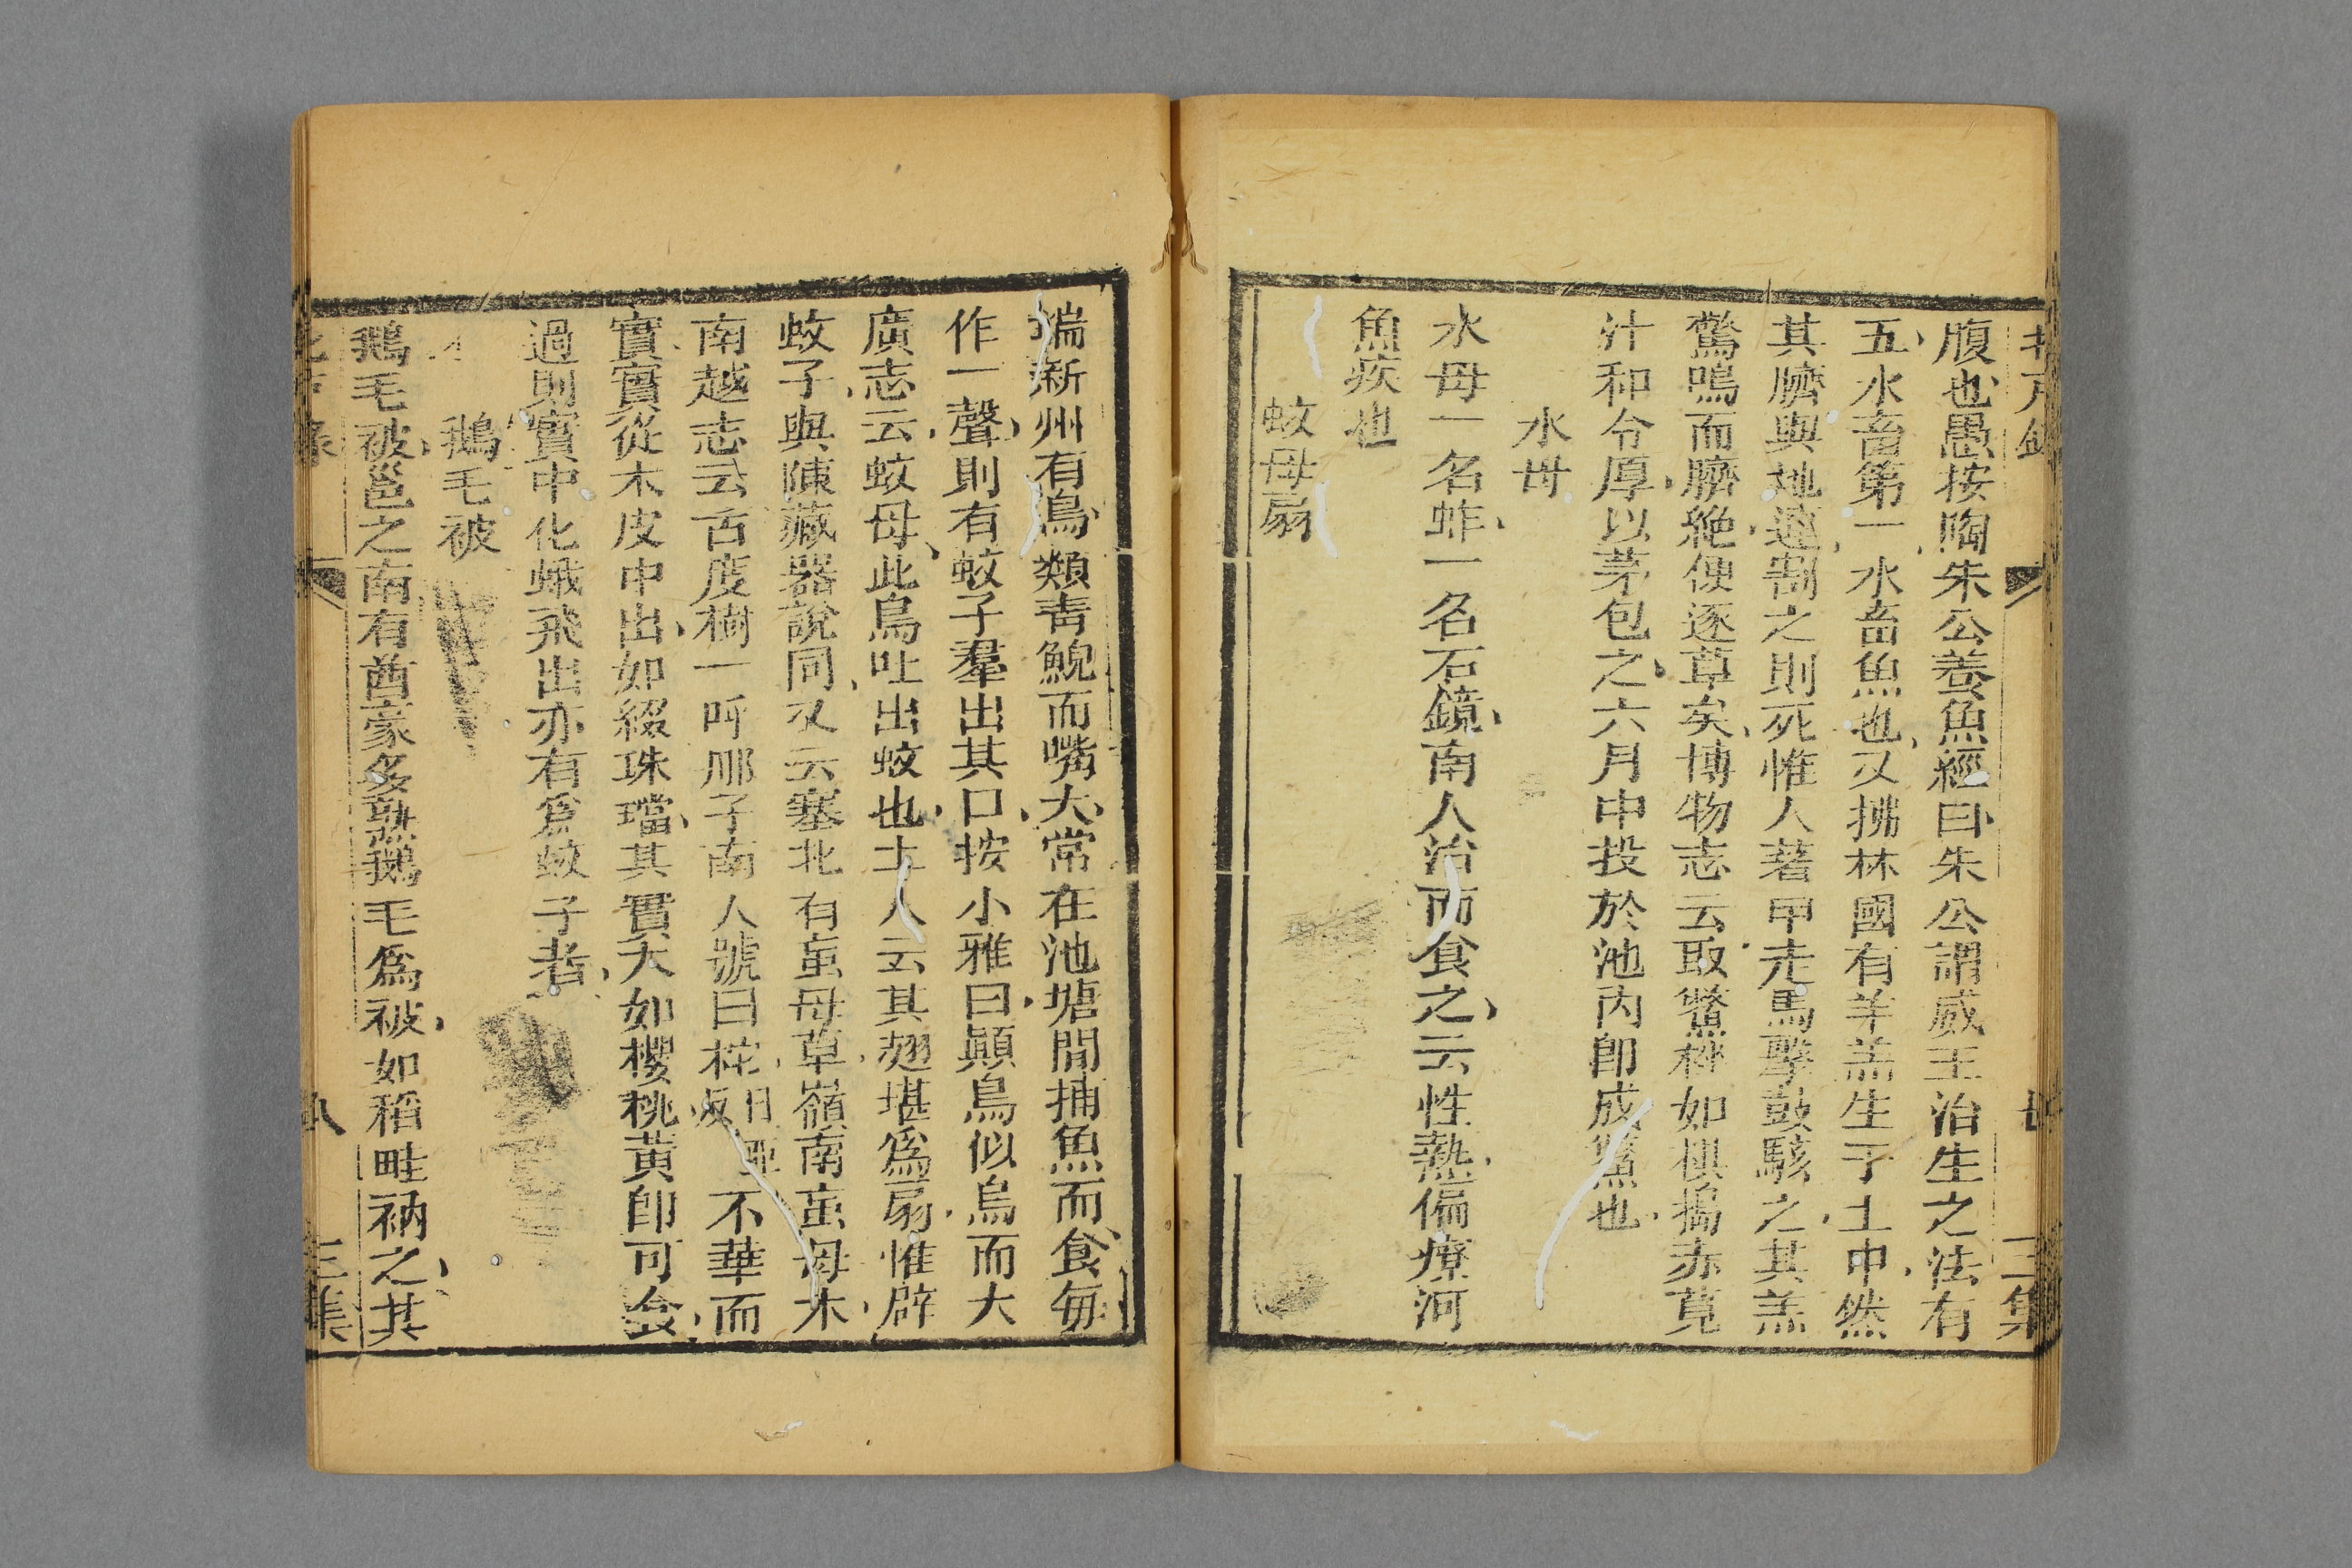 腹也愚按陶朱公養魚經曰朱公謂威王治生之法有
五水畜第一水畜魚也又拂林國有羊羔生于土中然
其臍與地連割之則死惟人著甲走馬擊鼓駭之其羔
驚鳴而臍絶便逐草矣博物志云取鱉剉如棋搗赤莧
汁和令厚以茅包之六月中投於池内卽成鱉也
水母
水母一名蚱一名石鏡南人治而食之云性熱偏療河
魚疾也
蚊母扇
端新州有鳥類青鶃而嘴大常在池塘間捕魚而食每
作一聲則有蚊子羣出其口按小雅曰顚鳥似烏而大
廣志云蚊母此鳥吐出蚊也土人云其翅堪爲扇惟辟
蚊子與陳藏器說同又云塞北有䖟母草嶺南䖟母木
南越志云古度樹一呼㮈子南人號曰柁 不華而
實實從木皮中出如綴珠璫其實大如櫻桃黃卽可食
過則實中化蛾飛出亦有爲蚊子者
鵝毛被
鵝毛被邕之南有酋豪多熟鵝毛爲被如稻畦衲之其
三集